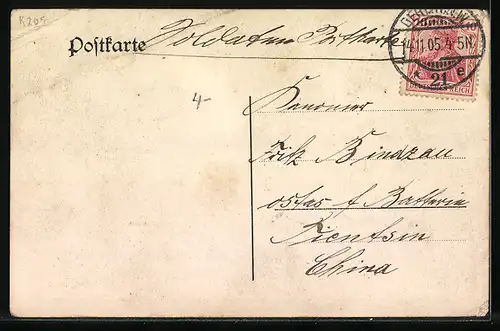 K205
Postkarte Soldaten Postkarte
14.11.05.4-5N.
* 21 e
10
DEUTSCHES REICH
4-
Kanonier
Fritz Bindzau
Ostas f Batterie
Tientsin
China